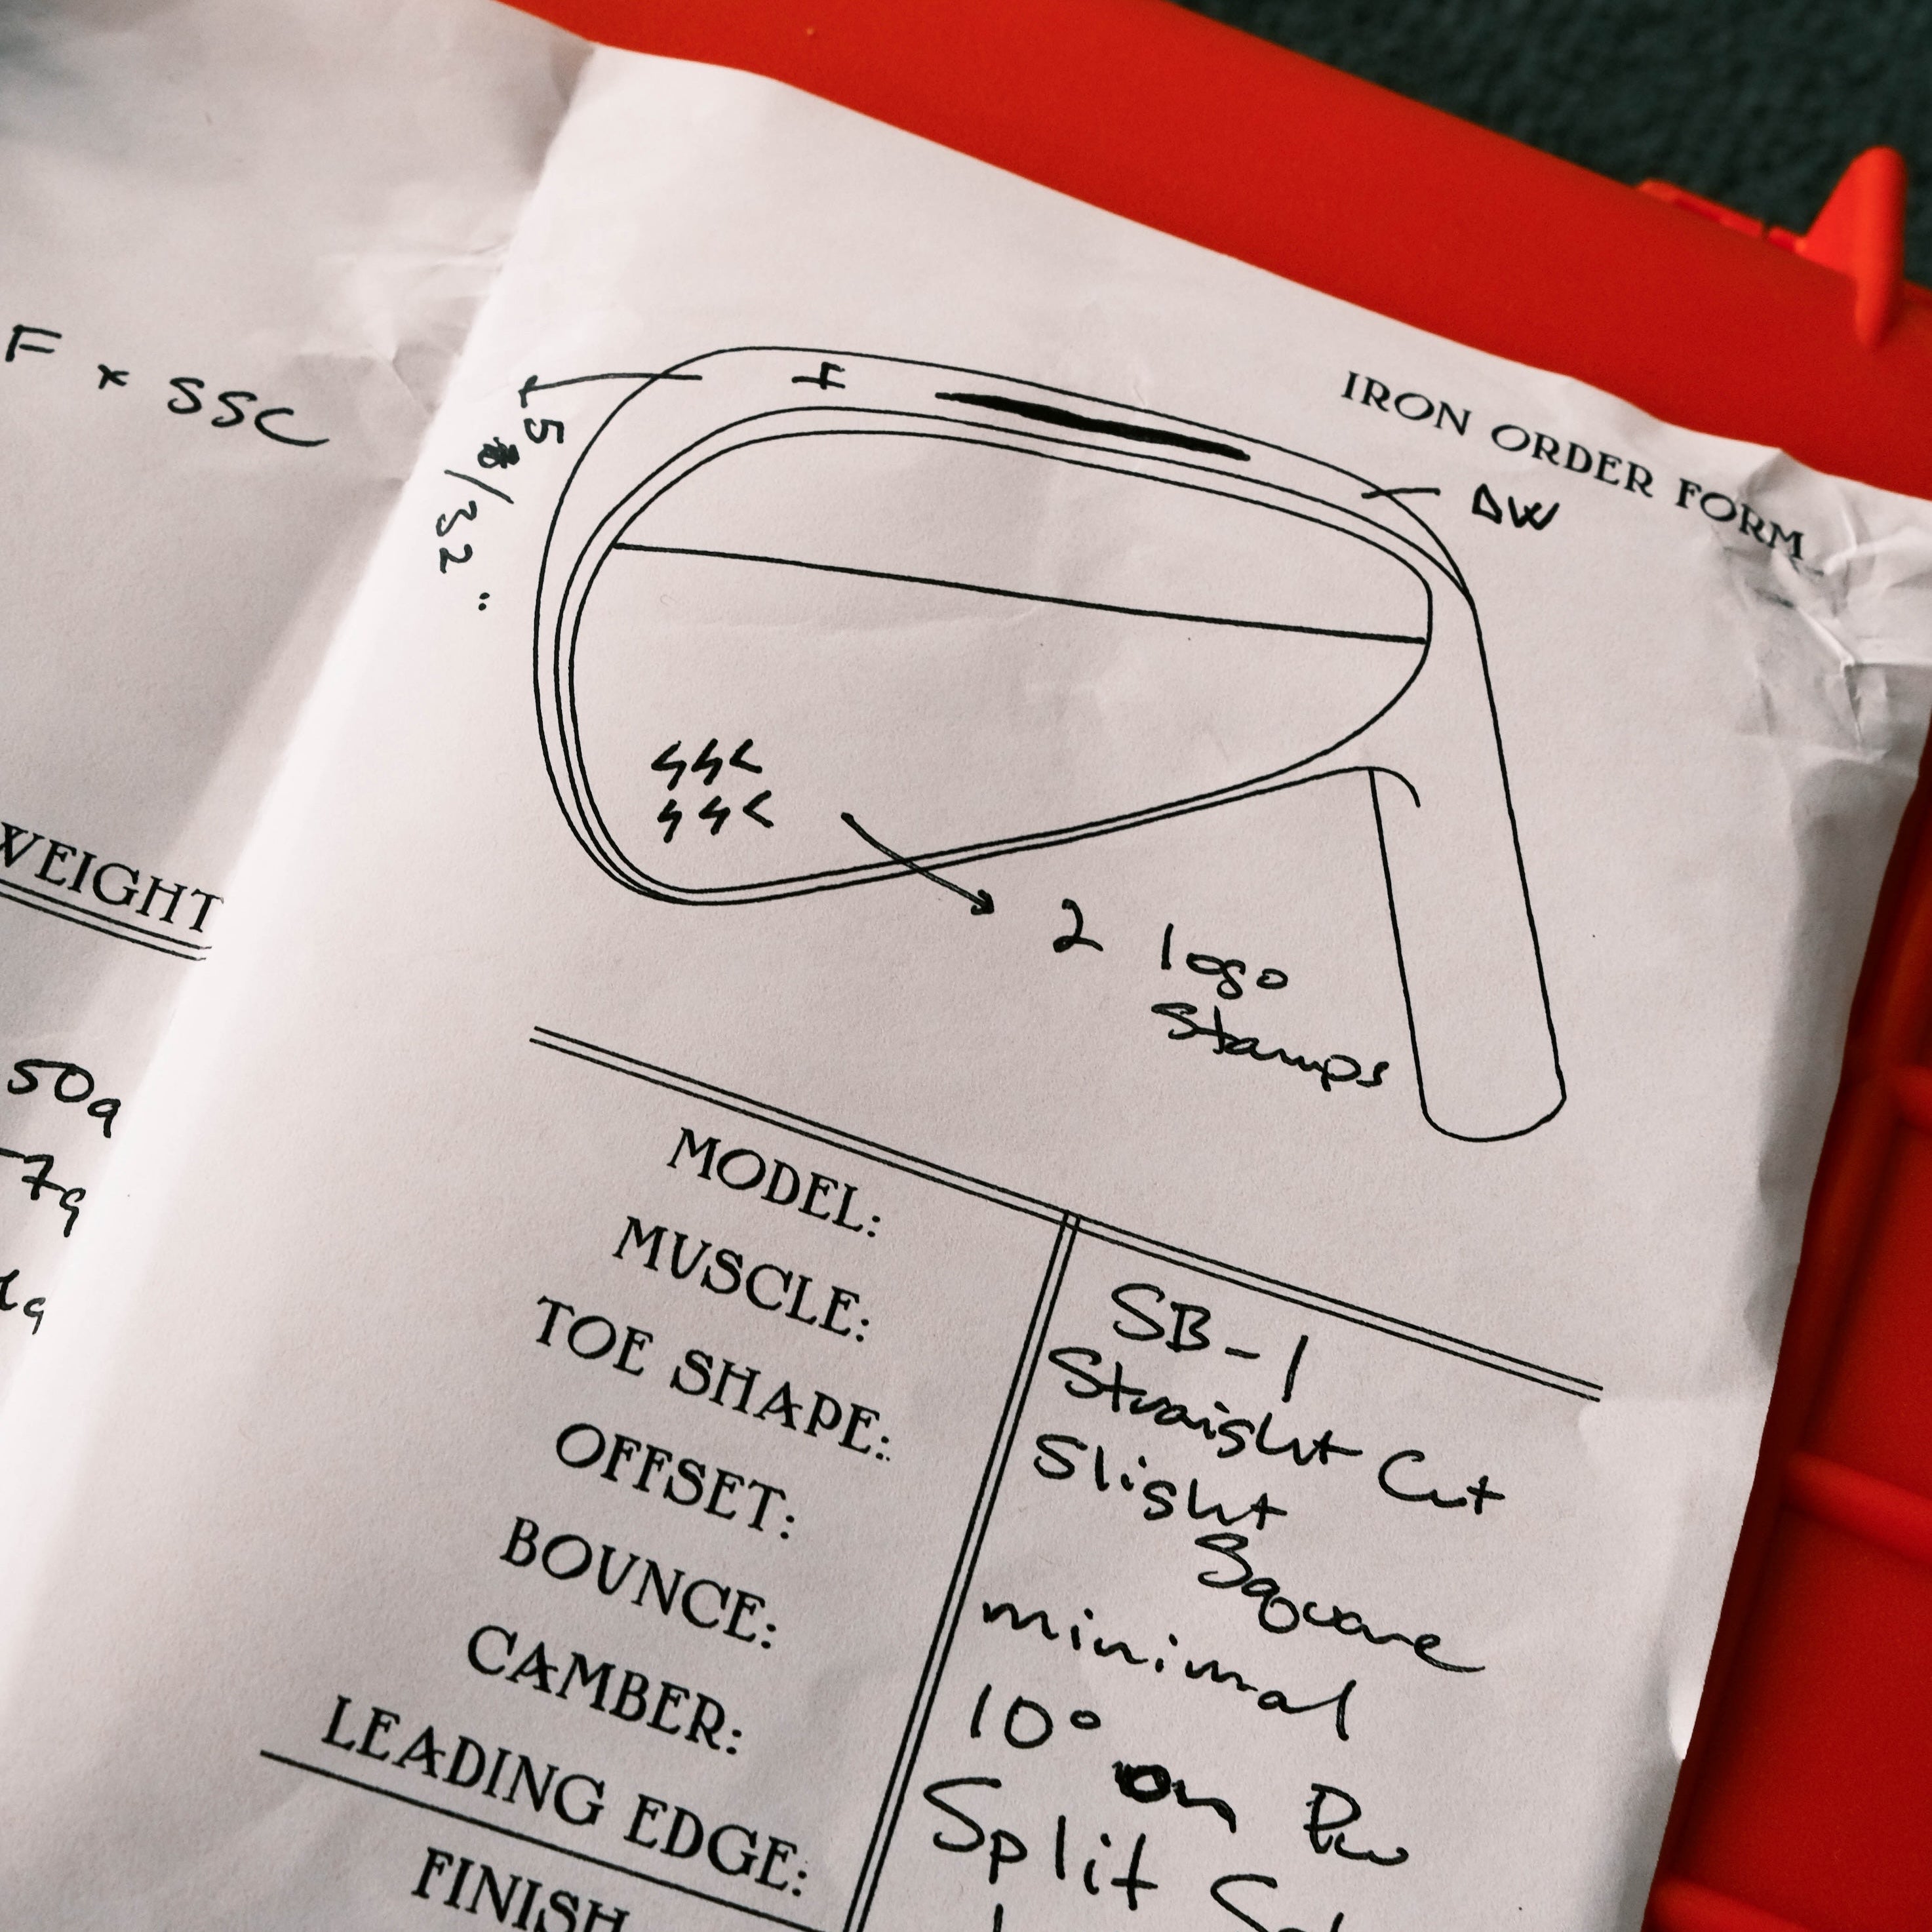 F x SSC
WEIGHT
50g
-7g
IRON ORDER FORM
5/32"
DW
2 logo
Stamps
MODEL: SB-1
MUSCLE: Straight Cut
TOE SHAPE: Slight
Square
OFFSET: minimal
BOUNCE: 10° on PW
CAMBER: Split
LEADING EDGE:
FINISH